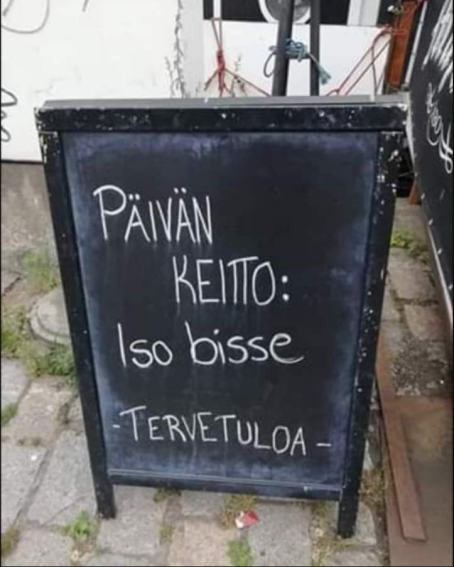 PÄIVÄN
KEITTO:
Iso bisse
-TERVETULOA-